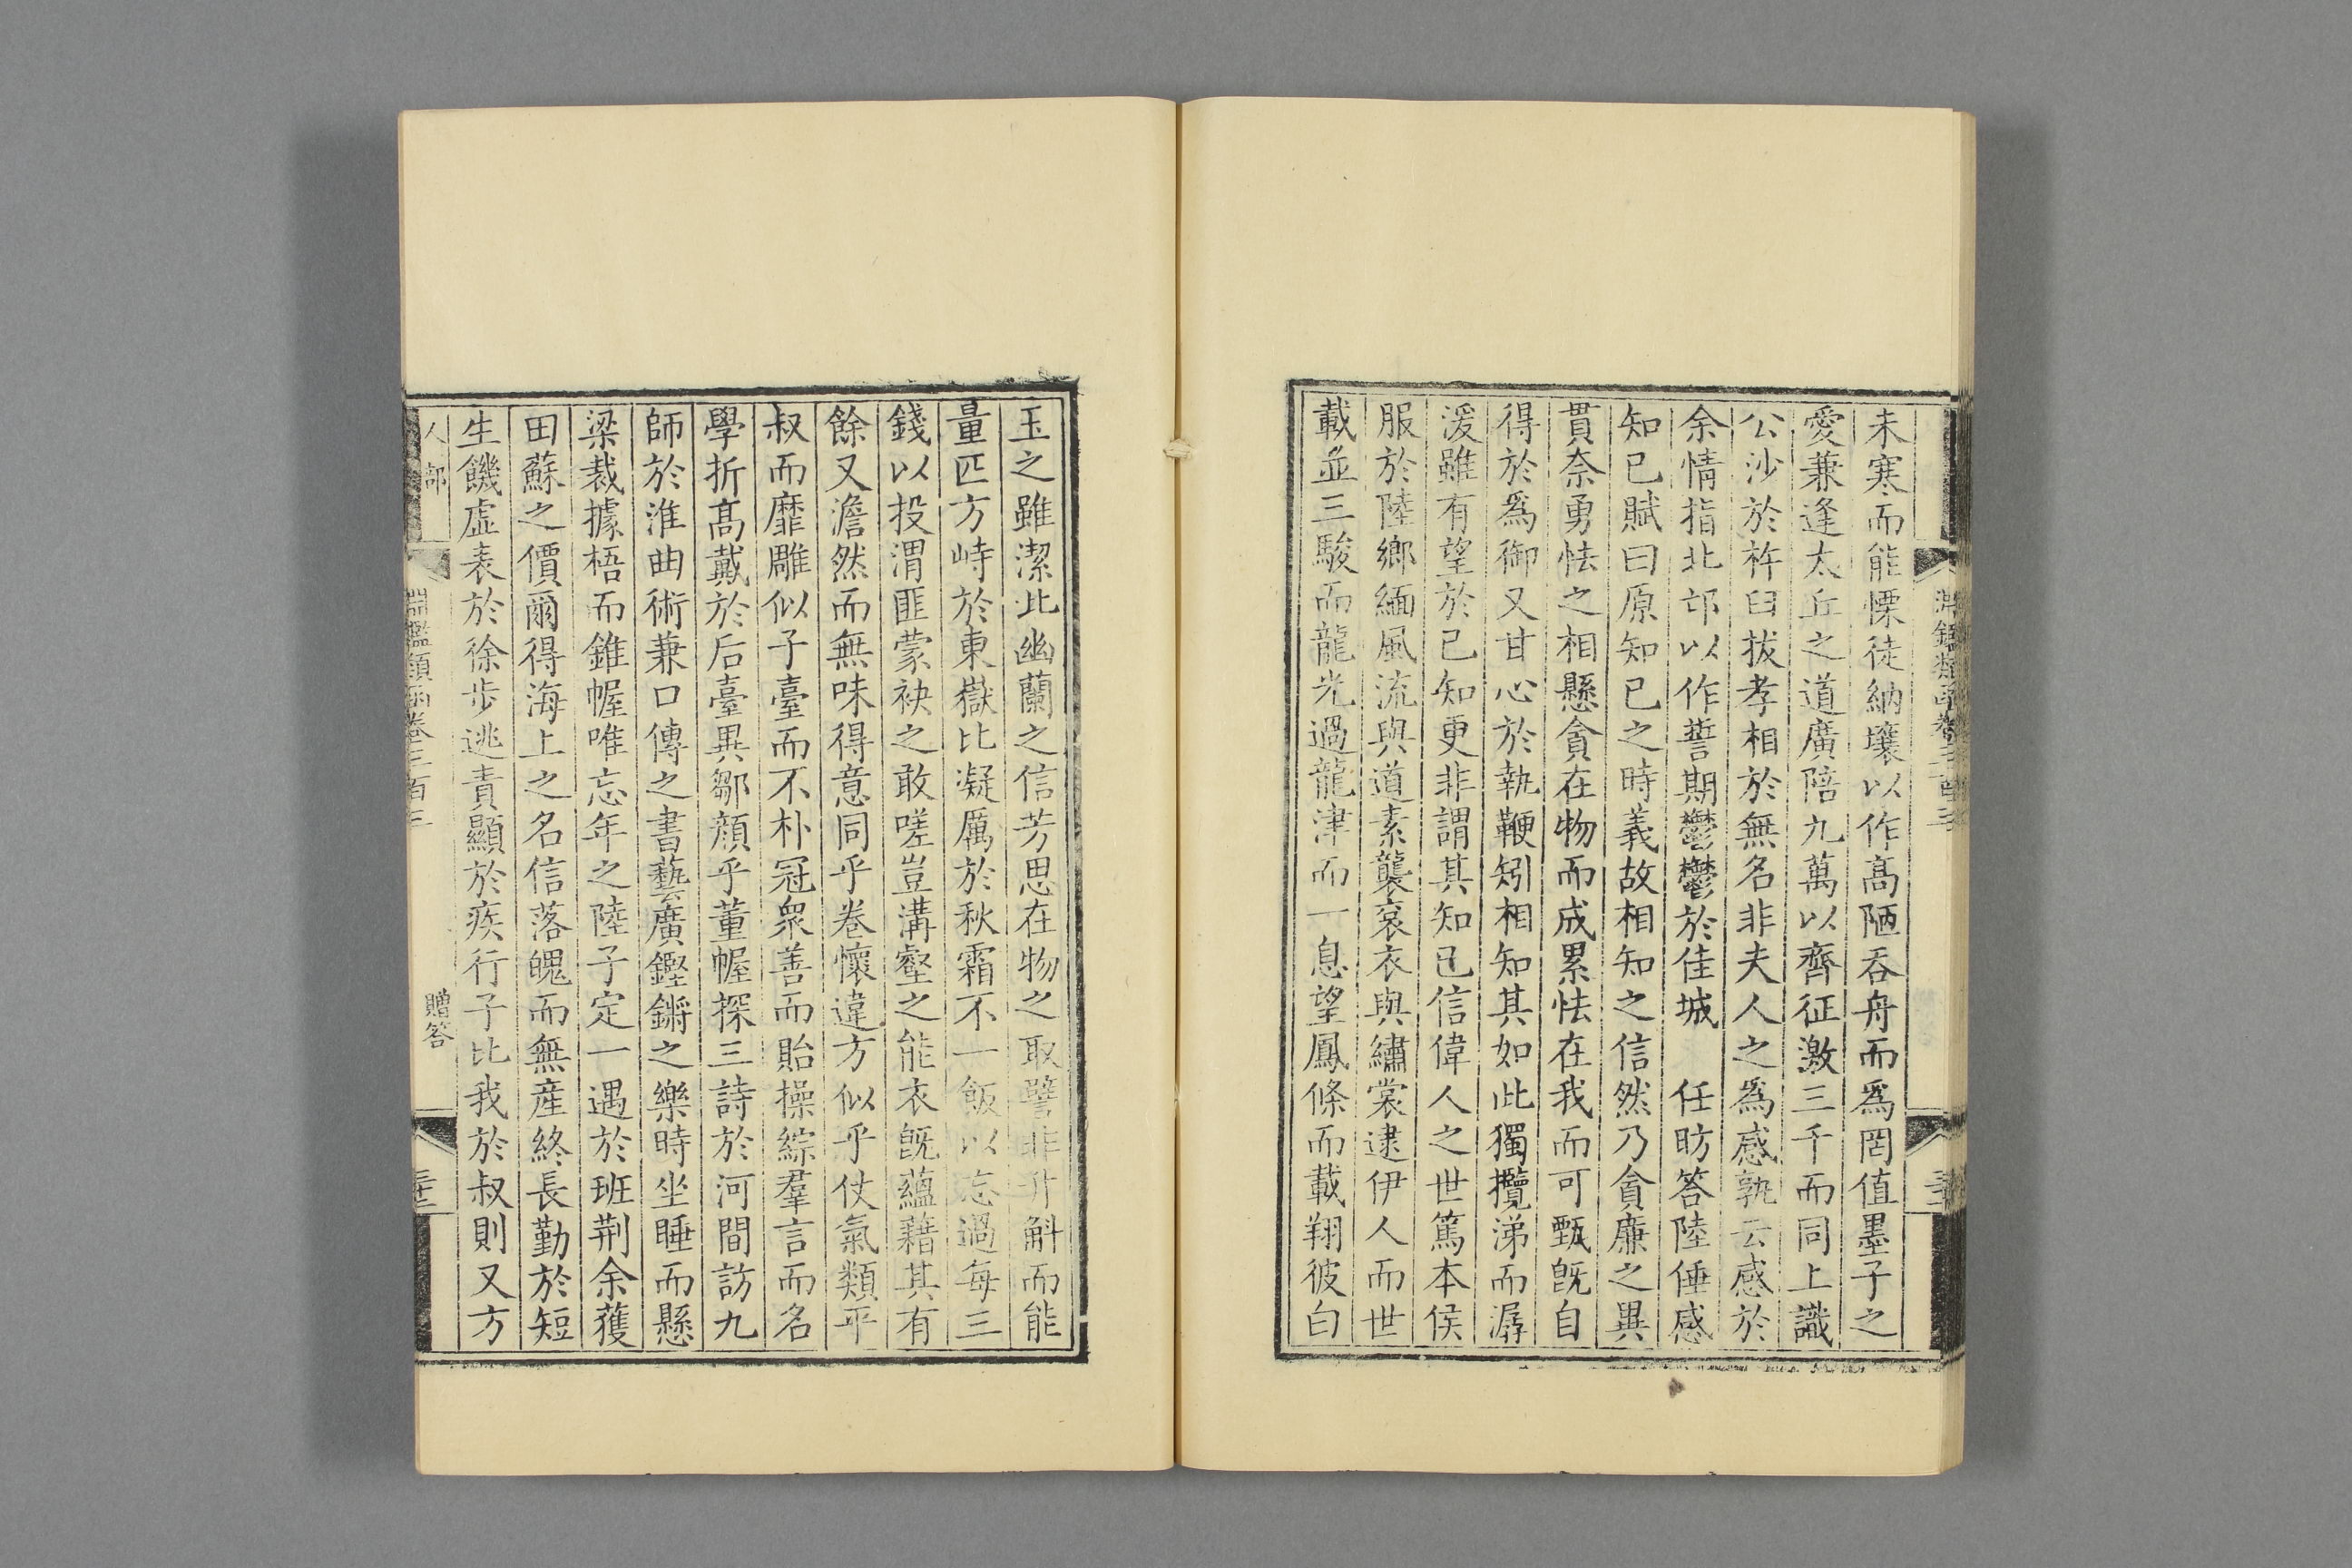 未寒而能慄徒納壤以作髙陋吞舟而爲罔值墨子之
愛兼逢太丘之道廣陪九萬以齊征激三千而同上識
公沙於杵臼拔孝相於無名非夫人之爲感孰云感於
余情指北邙以作誓期鬱鬱於佳城　任昉答陸倕感
知已賦曰原知已之時義故相知之信然乃貪廉之異
貫奈勇怯之相懸貪在物而成累怯在我而可甄旣自
得於爲御又甘心於執鞭矧相知其如此獨攬涕而潺
湲雖有望於已知更非謂其知已信偉人之世篤本侯
服於陸鄉緬風流與道素襲衮衣與繡裳逮伊人而世
載並三駿而龍光過龍津而一息望鳳條而載翔彼白
玉之雖潔此幽蘭之信芳思在物之取譬非升斛而能
量匹方峙於東嶽比凝厲於秋霜不一飯以忘過每三
錢以投渭匪蒙袂之敢嗟豈溝壑之能衣旣蘊藉其有
餘又澹然而無味得意同乎卷懷違方似乎仗氣類平
叔而靡雕似子臺而不朴冠衆善而貽操綜羣言而名
學折髙戴於后臺異鄒顔乎董幄探三詩於河間訪九
師於淮曲術兼口傳之書藝廣鏗鏘之樂時坐睡而懸
梁裁據梧而錐幄唯忘年之陸子定一遇於班荆余獲
田蘇之價爾得海上之名信落魄而無産終長勤於短
生饑虛表於徐步逃責顯於疾行子比我於叔則又方
人部
淵鑑類函卷三百三
贈答